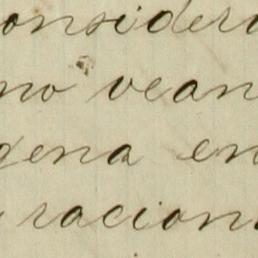 onsider
no vean
gena en
racion